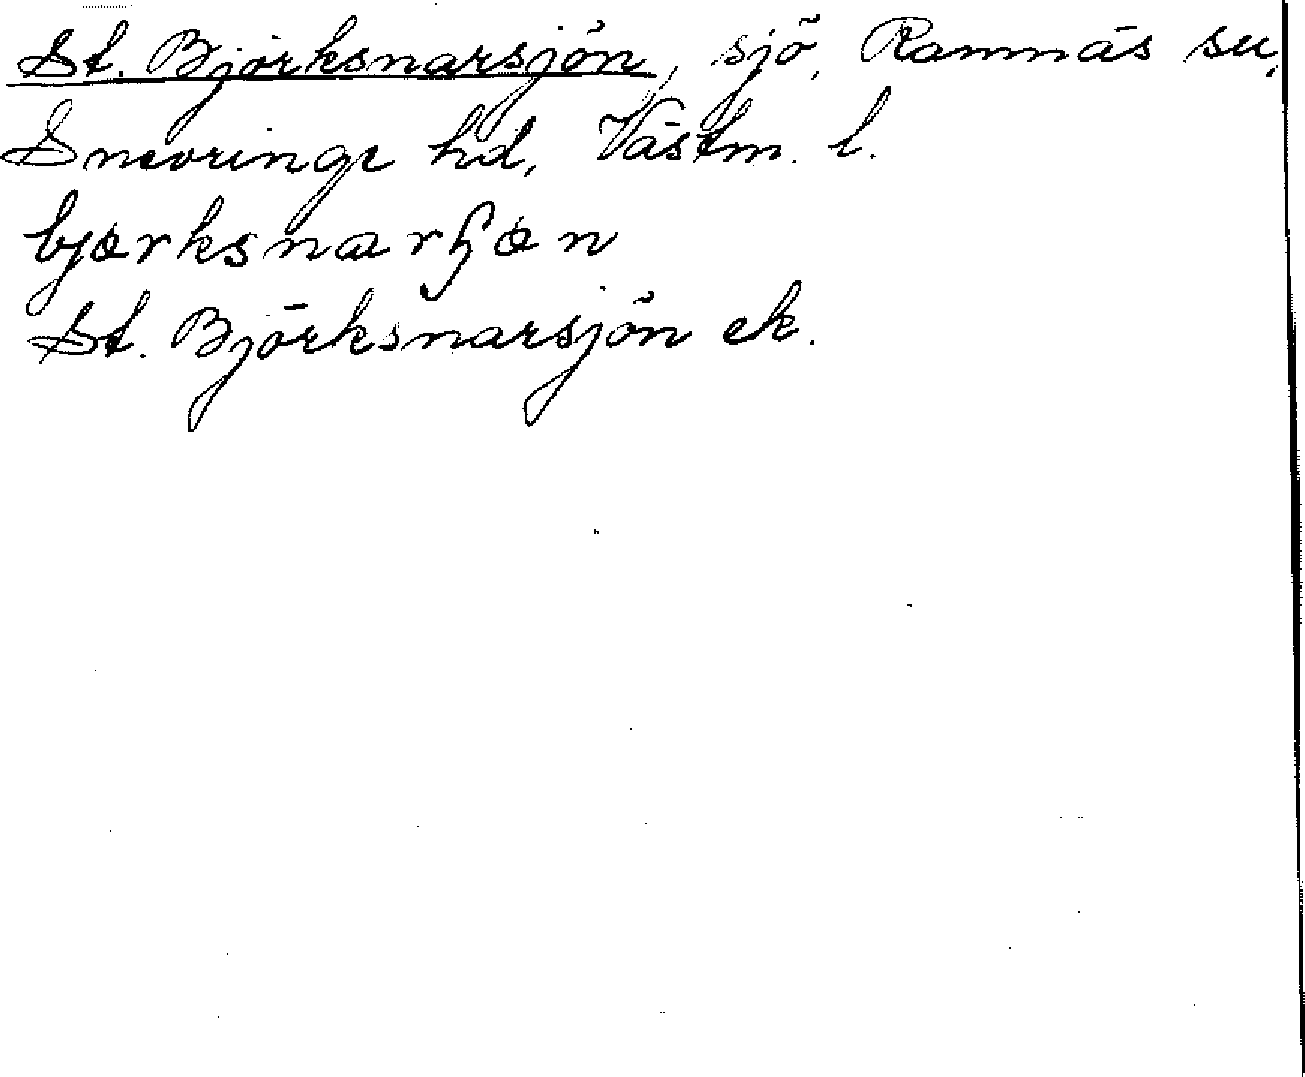 St. Björksnarsjön, sjö, Ramnäs sn,
Snevringe hd, Västm. l.
bjørksnarɧøn
St. Björksnarsjön ek.